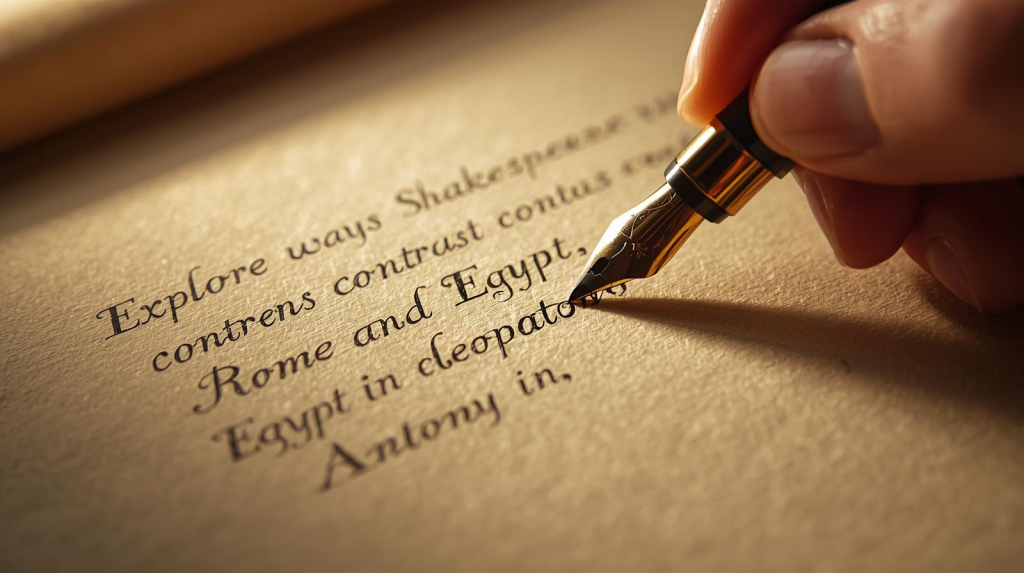 Explore ways Shakespeare
contrens contrast contus
Rome and Egypt,
Egypt in cleopato
Antony in,